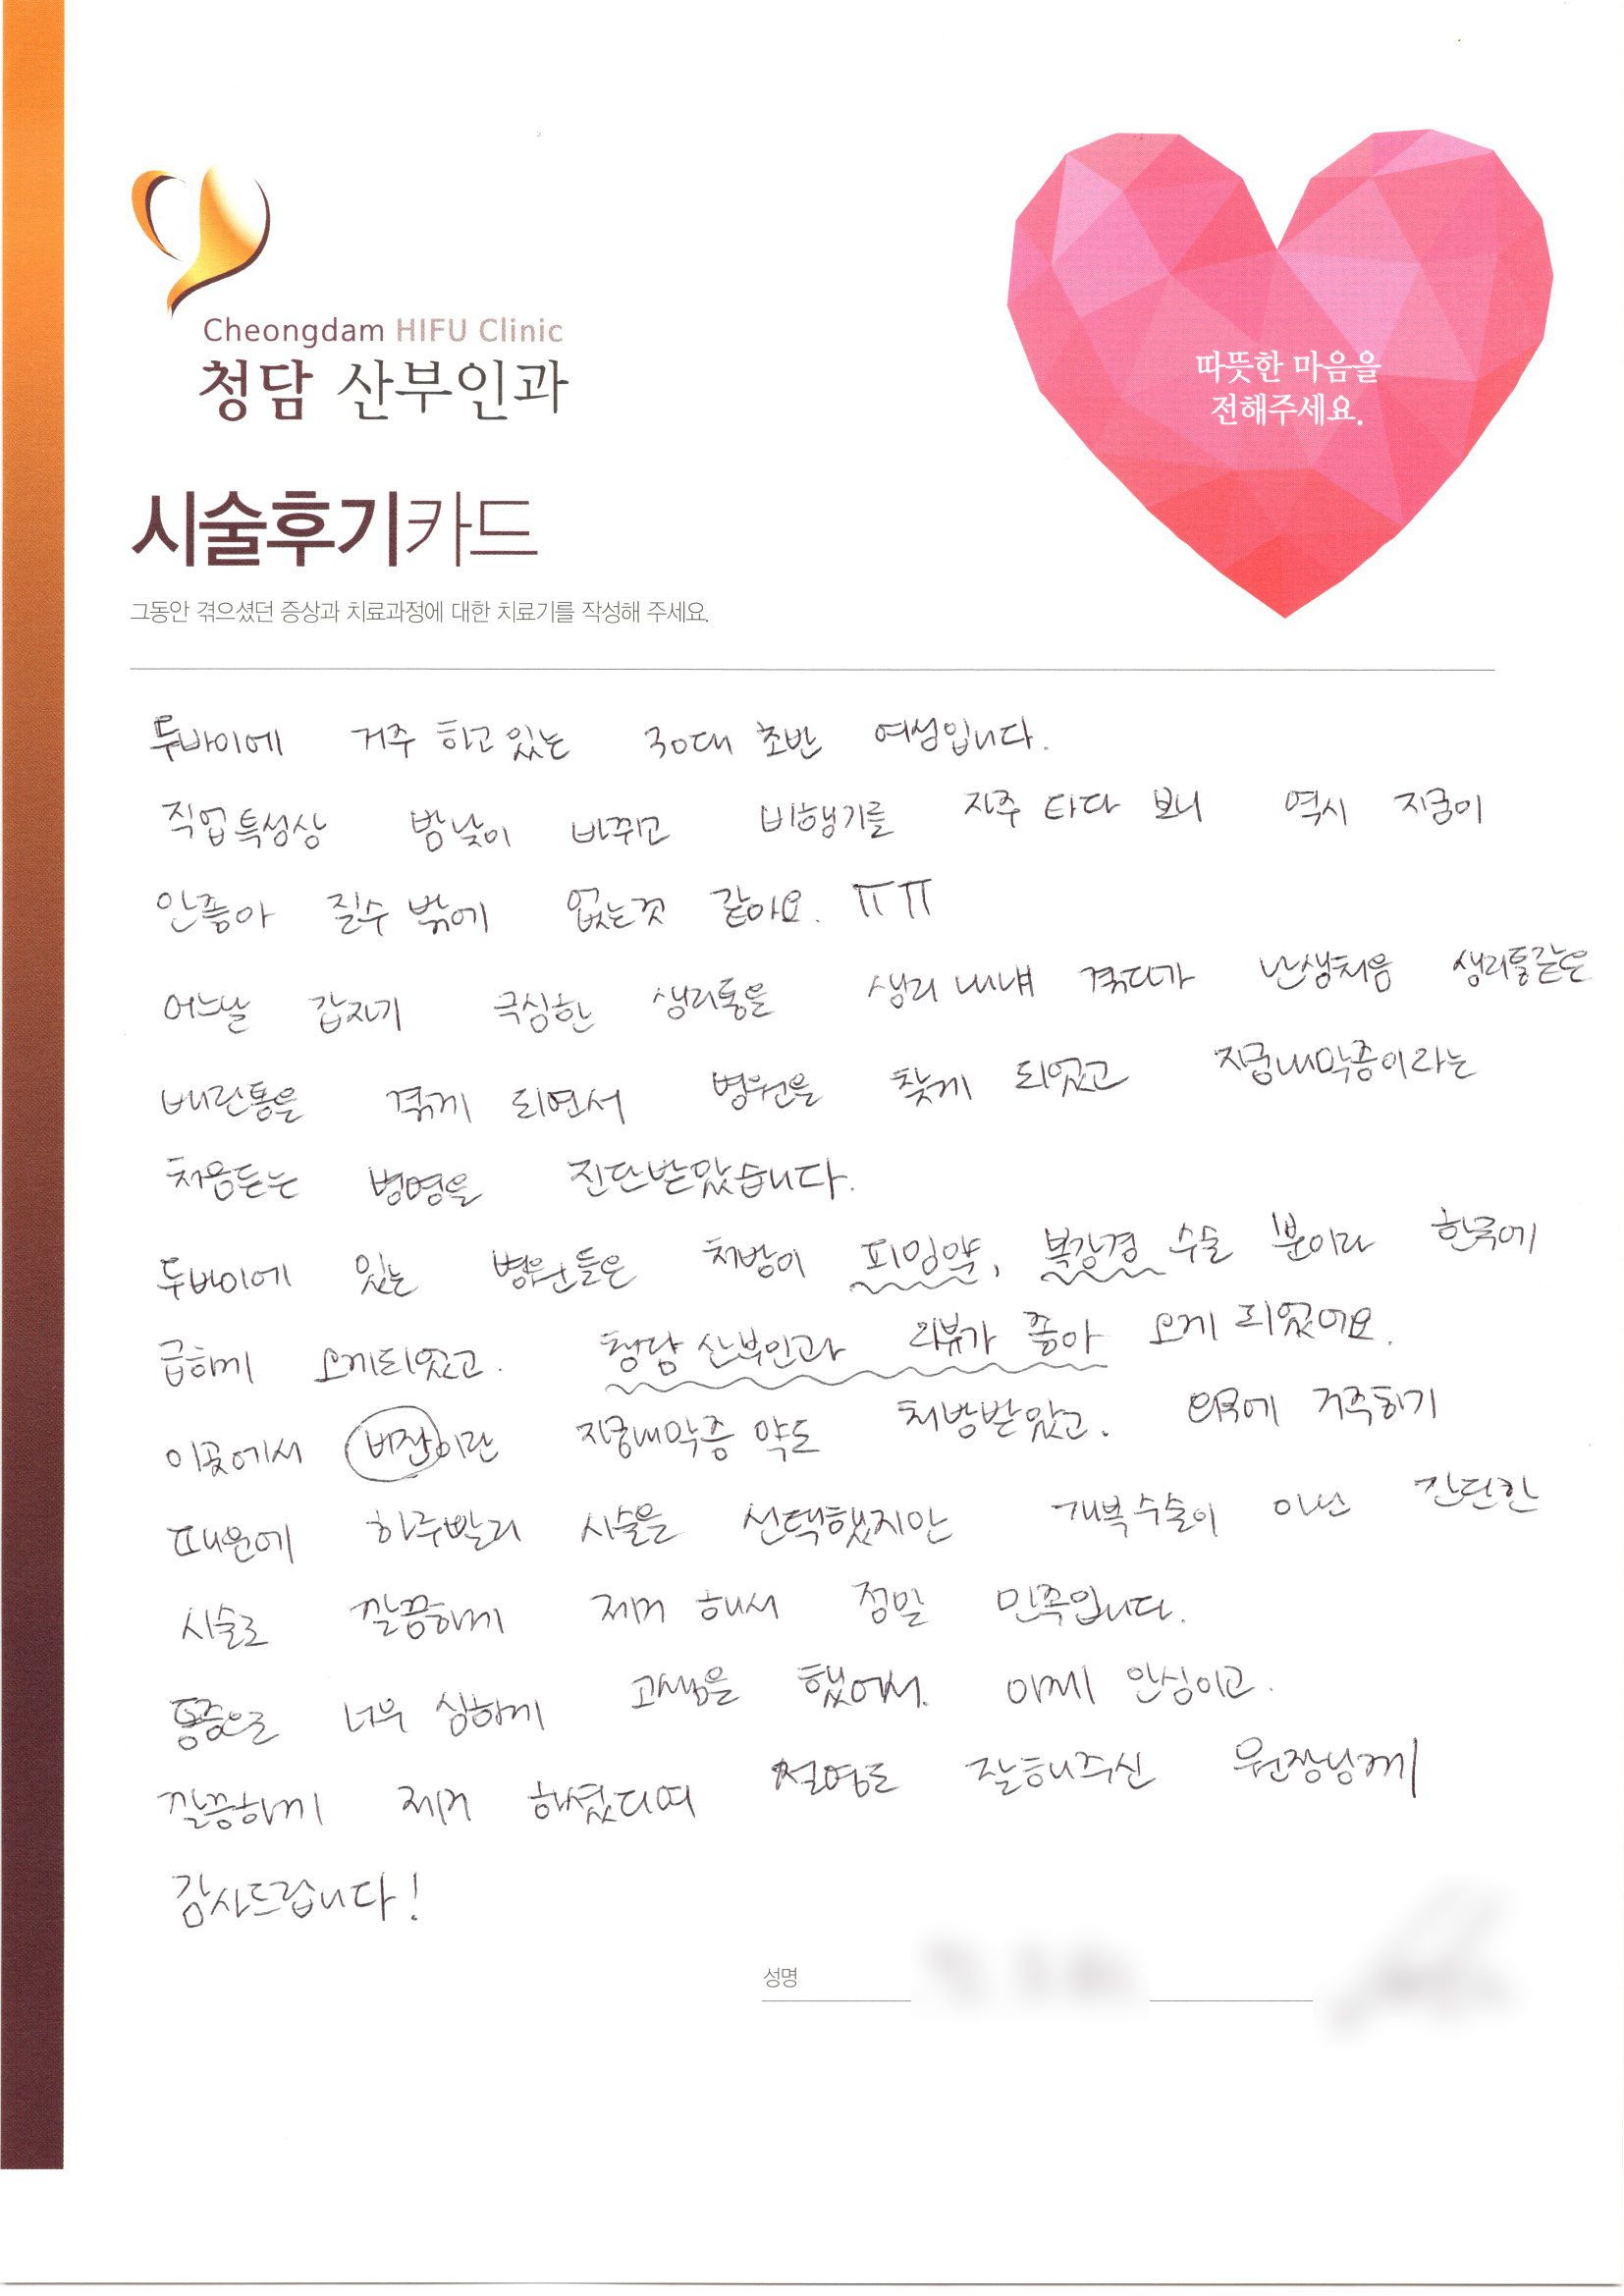 Cheongdam HIFU Clinic
청담 산부인과
따뜻한 마음을
전해주세요.
시술후기카드
그동안 겪으셨던 증상과 치료과정에 대한 치료기를 작성해 주세요.
두바이에 거주 하고 있는 30대 초반 여성입니다.
직업특성상 밤낮이 바뀌고 비행기를 자주 타다 보니 역시 자궁이
안좋아 질수 밖에 없는것 같아요. ㅠㅠ
어느날 갑자기 극심한 생리통을 생리 내내 겪다가 난생처음 생리통같은
배란통을 겪게 되면서 병원을 찾게 되었고 자궁내막증이라는
처음듣는 병명을 진단받았습니다.
두바이에 있는 병원들은 처방이 피임약, 복강경 수술 뿐이라 한국에
급하게 오게되었고. 청담 산부인과 리뷰가 좋아 오게 되었어요.
이곳에서 비잔이란 자궁내막증 약도 처방받았고. 외국에 거주하기
때문에 하루빨리 시술을 선택했지만 개복수술이 아닌 간단한
시술로 깔끔하게 제거 해서 정말 만족입니다.
통증으로 너무 심하게 고생을 했어서. 이제 안심이고.
깔끔하게 제거 하셨다며 설명도 잘해주신 원장님께
감사드립니다!
성명